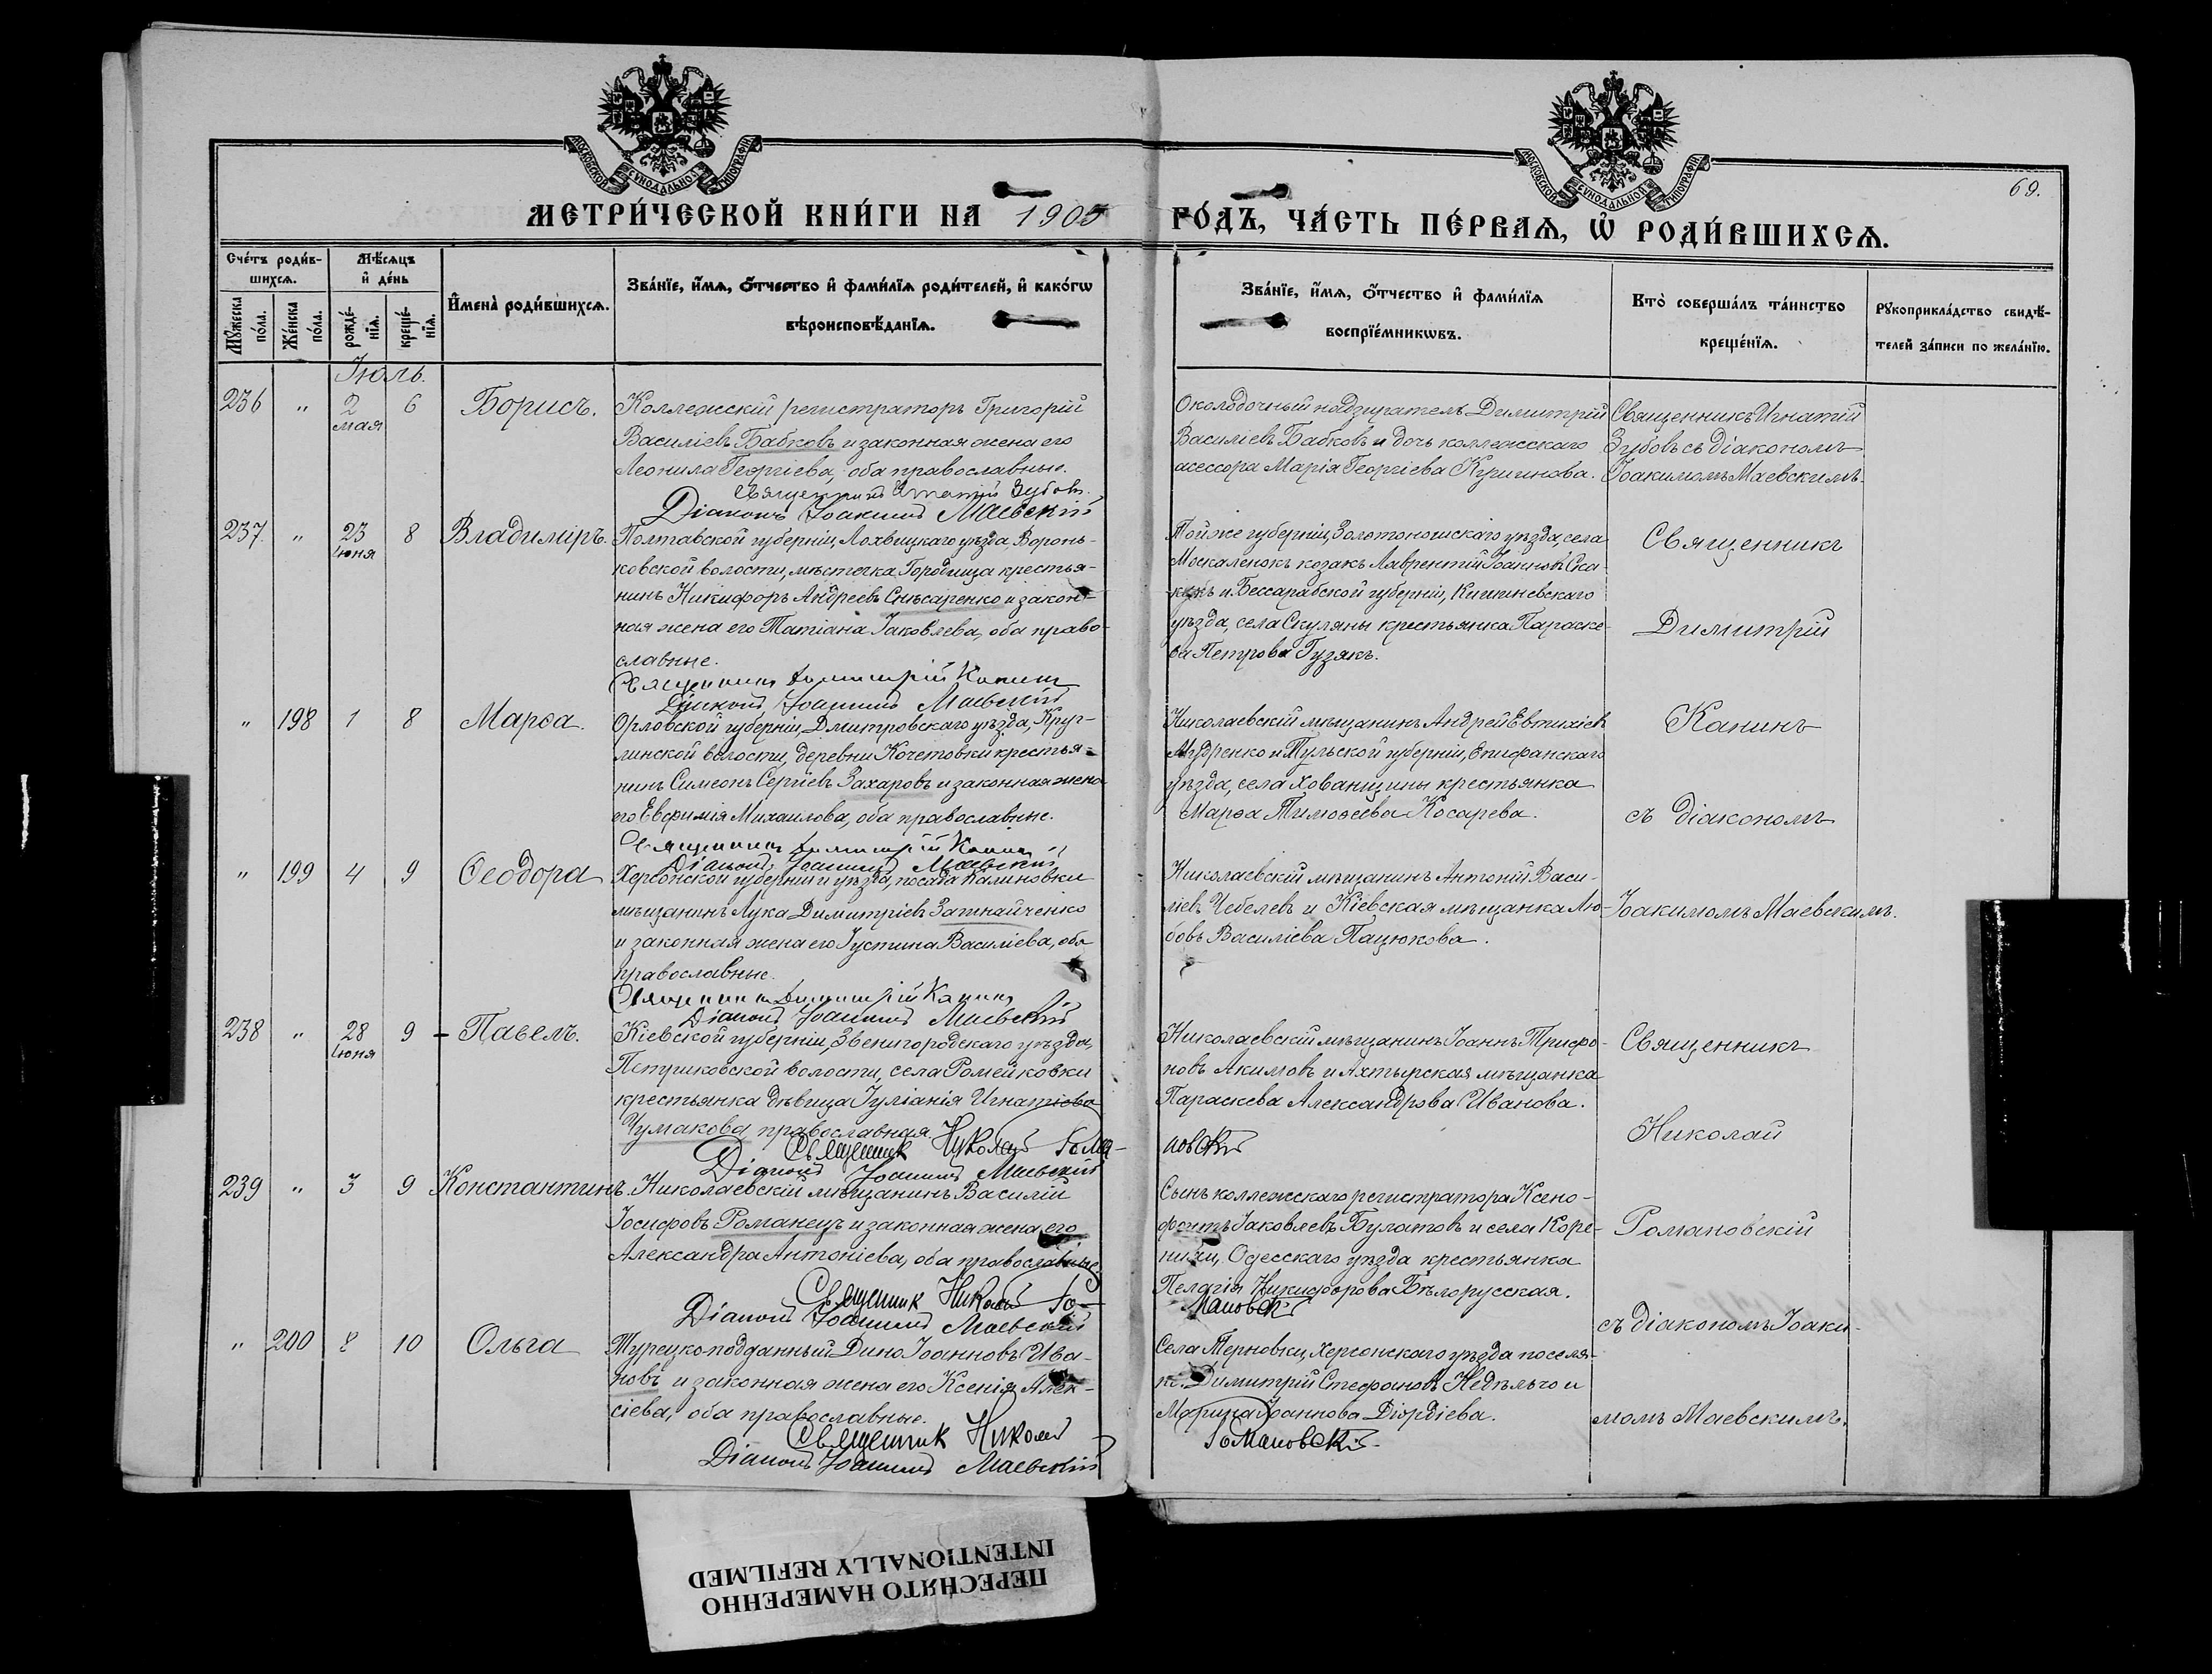 МОСКОВСКОЙ СѴНОДАЛЬНОЙ ТИПОГРАФІИ
МОСКОВСКОЙ СѴНОДАЛЬНОЙ ТИПОГРАФІИ
69.
МЕТРИ́ЧЕСКОЙ КНИ́ГИ НА 1905 ГО́ДЪ, ЧА́СТЬ ПЕ́РВАѦ, Ѡ҆ РОДИ́ВШИХСѦ.
Сче́тъ роди́в-
шихсѧ.
Мꙋ́жеска
по́ла.
Же́нска
по́ла.
Мѣ́сѧцъ
и҆ де́нь
рожде́-
нїѧ.
креще́-
нїѧ.
И҆мена̀ роди́вшихсѧ.
Зва́нїе, и҆́мѧ, ѻ҆́тчество и҆ фами́лїѧ роди́телей, и҆ како́гѡ
вѣроисповѣ́данїѧ.
Зва́нїе, и҆́мѧ, ѻ҆́тчество и҆ фами́лїѧ
воспрїе́мникѡвъ.
Кто̀ соверша́лъ та́инство
креще́нїѧ.
Рꙋкоприкла́дство свидѣ́-
телей за́писи по жела́нїю.
Іюль.
236 " 2 мая 6 Борисъ.
Коллежскій регистраторъ Григорій
Василіевъ Бабковъ и законная жена его
Леонила Георгіева, оба православные.
Священникъ Игнатій Зубовъ.
Діаконъ Іоакимъ Маевскій
Околодочный надзиратель Димитрій
Василіевъ Бабковъ и дочь коллежскаго
асессора Марія Георгіева
Священникъ Игнатій
Зубовъ съ діакономъ
Іоакимомъ Маевскимъ.
237. " 23 іюня 8 Владиміръ.
Полтавской губерніи, Лохвицкаго уѣзда, Воронь-
ковской волости, мѣстечка Городища крестья-
нинъ Никифоръ Андреевъ Снѣсаренко и закон-
ная жена его Татіана Іаковлева, оба право-
славные.
Священникъ Димитрій Канинъ
Діаконъ Іоакимъ Маевскій
Той же губерніи, Золотоношскаго уѣзда, села
Москаленокъ козакъ Лаврентій Іоанновъ Ска-
кунъ и Бессарабской губерніи, Кишиневскаго
уѣзда, села Скуляны крестьянка Параске-
ва Петрова Гузякъ.
Священникъ
Димитрій
" 198 1 8 Марѳа.
Орловской губерніи, Дмитровскаго уѣзда, Круг-
линской волости, деревни Кочетовки крестья-
нинъ Симеонъ Сергіевъ Захаровъ и законная жена
его Евфимія Михаилова, оба православные.
Священникъ Димитрій Канинъ
Діаконъ Іоакимъ Маевскій
Николаевскій мѣщанинъ Андрей Евтихіевъ
Мудренко и Тульской губерніи, Епифанскаго
уѣзда, села Хованщины крестьянка
Марѳа Тимоѳеева Косарева.
Канинъ
съ діакономъ
" 199 4 9 Ѳеодора
Херсонской губерніи и уѣзда, посада Калиновки
мѣщанинъ Лука Димитріевъ
и законная жена его Іустина Василіева, оба
православные.
Священникъ Димитрій Канинъ
Діаконъ Іоакимъ Маевскій
Николаевскій мѣщанинъ Антоній Васи-
ліевъ Чебелевъ и Кіевская мѣщанка Лю-
бовь Василіева Пацюкова.
Іоакимомъ Маевскимъ.
238 " 28 іюня 9 Павелъ.
Кіевской губерніи, Звенигородскаго уѣзда,
Петриковской волости, села Ромейковки
крестьянка дѣвица Іуліанія Игнатіева
Чумакова православная.
Священник Николай Рома-
новскій
Діаконъ Іоакимъ Маевскій
Николаевскій мѣщанинъ Іоаннъ Трифо-
новъ Акимовъ и Ахтырская мѣщанка
Параскева Александрова Иванова.
Священникъ
Николай
239 " 3 9 Константинъ.
Николаевскій мѣщанинъ Василій
Іосифовъ Романецъ и законная жена его
Александра Антоніева, оба православные.
Священник Николай Ро-
мановскій
Діаконъ Іоакимъ Маевскій
Сынъ коллежскаго регистратора Ксено-
фонтъ Іаковлевъ Булатовъ и села Коре-
нихи, Одесскаго уѣзда крестьянка
Пелагія Никифорова Бѣлорусская.
Романовскій
съ діакономъ Іоаки-
" 200 8 10 Ольга
Турецкоподданный Дино Іоанновъ Ива-
новъ и законная жена его Ксенія Алек-
сіева, оба православные.
Священник Николай
Романовскій
Діаконъ Іоакимъ Маевскій
Села Терновки, Херсонскаго уѣзда поселя-
не: Димитрій Стефановъ Недѣльчо и
Марина Іоаннова Діордіева.
момъ Маевскимъ.
ПЕРЕСНЯТО НАМЕРЕННО
INTENTIONALLY REFILMED